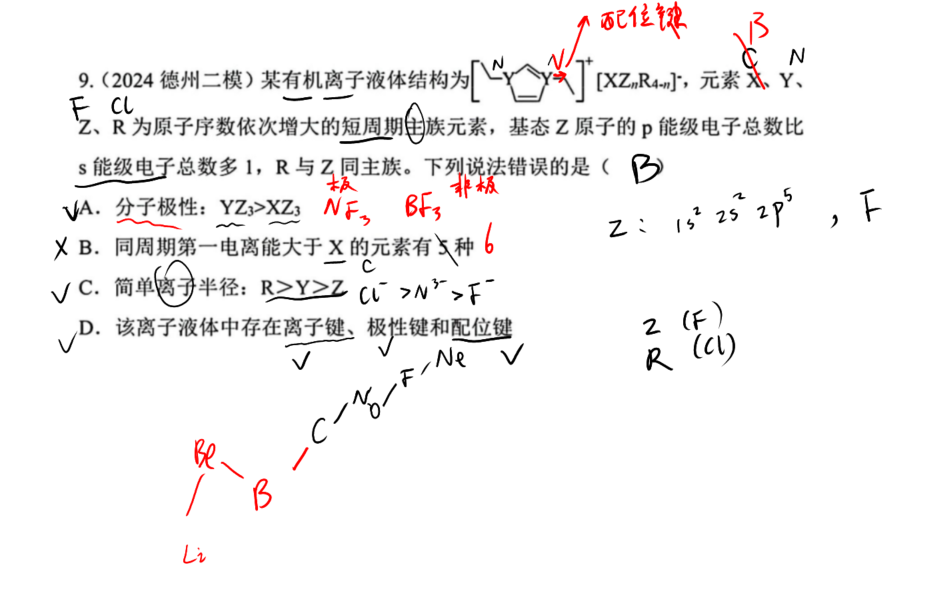 配位键
B
N N C N
9.(2024 德州二模)某有机离子液体结构为[ Y Y ]⁺ [XZₙR₄₋ₙ]⁻，元素 X、Y、
F Cl
Z、R 为原子序数依次增大的短周期主族元素，基态 Z 原子的 p 能级电子总数比
s 能级电子总数多 1，R 与 Z 同主族。下列说法错误的是（ B ）
极 非极
√A．分子极性：YZ₃>XZ₃ NF₃ BF₃
Z: 1s² 2s² 2p⁵ , F
X B．同周期第一电离能大于 X 的元素有 5 种 6
C
√C．简单离子半径：R>Y>Z Cl⁻ >N³⁻ >F⁻
√D．该离子液体中存在离子键、极性键和配位键
√ √ √
Z (F)
R (Cl)
Ne
F
N
O
C
Be
B
Li